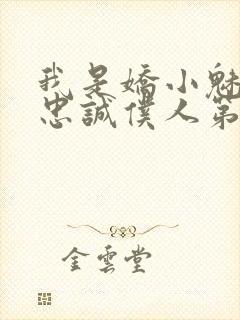 我是嬌小魅
忠誠僕人第
金雲堂